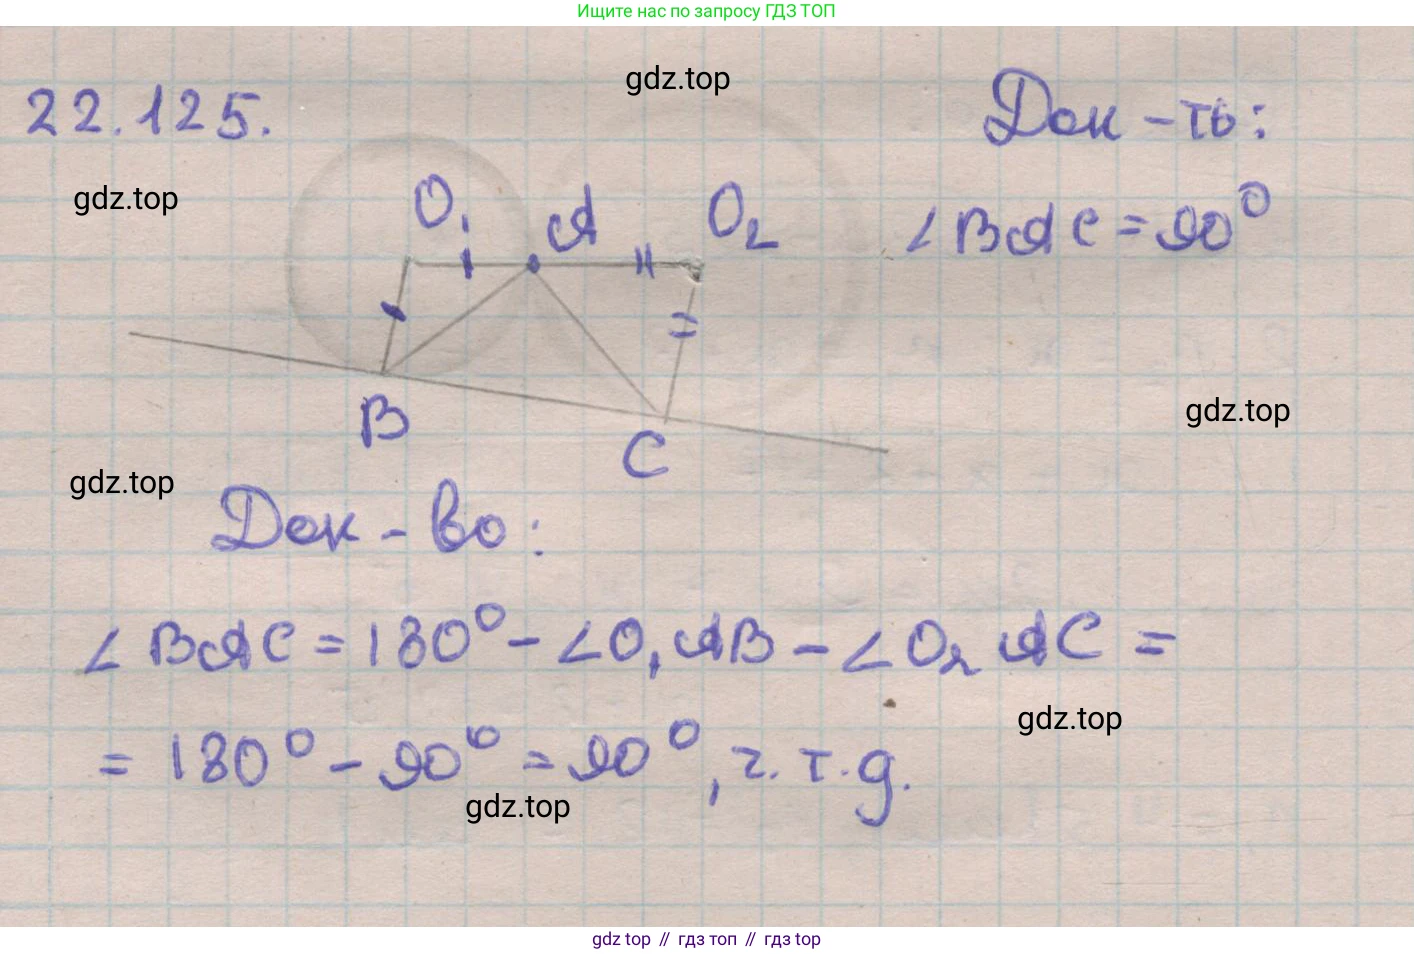 Ищите нас по запросу ГДЗ ТОП
22.125.
gdz.top
Док-ть:
gdz.top
O₁
A
O₂
∠BAC = 90⁰
B
C
gdz.top
gdz.top
Док-во:
∠BAC = 180⁰ - ∠O₁AB - ∠O₂AC =
gdz.top
= 180⁰ - 90⁰ = 90⁰, ч.т.д.
gdz.top
gdz top // гдз топ // gdz top